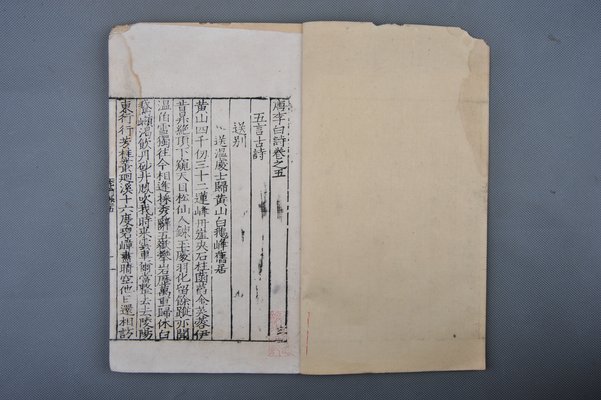 唐李白詩卷之五
五言古詩
送別
送溫處士歸黃山白鵝峰舊居
黃山四千仞三十二蓮峰丹崖夾石柱菡萏金芙蓉伊
昔昇絕頂下窺天目松仙人鍊玉處羽化留餘蹤亦聞
溫伯雪獨往今相逢採秀辭五嶽攀巖歷萬重歸休白
鵝嶺渴飲丹砂井鳳吹我時來雲車爾當整去去陵陽
東行行芳桂叢迴溪十六度碧嶂盡晴空他日還相訪